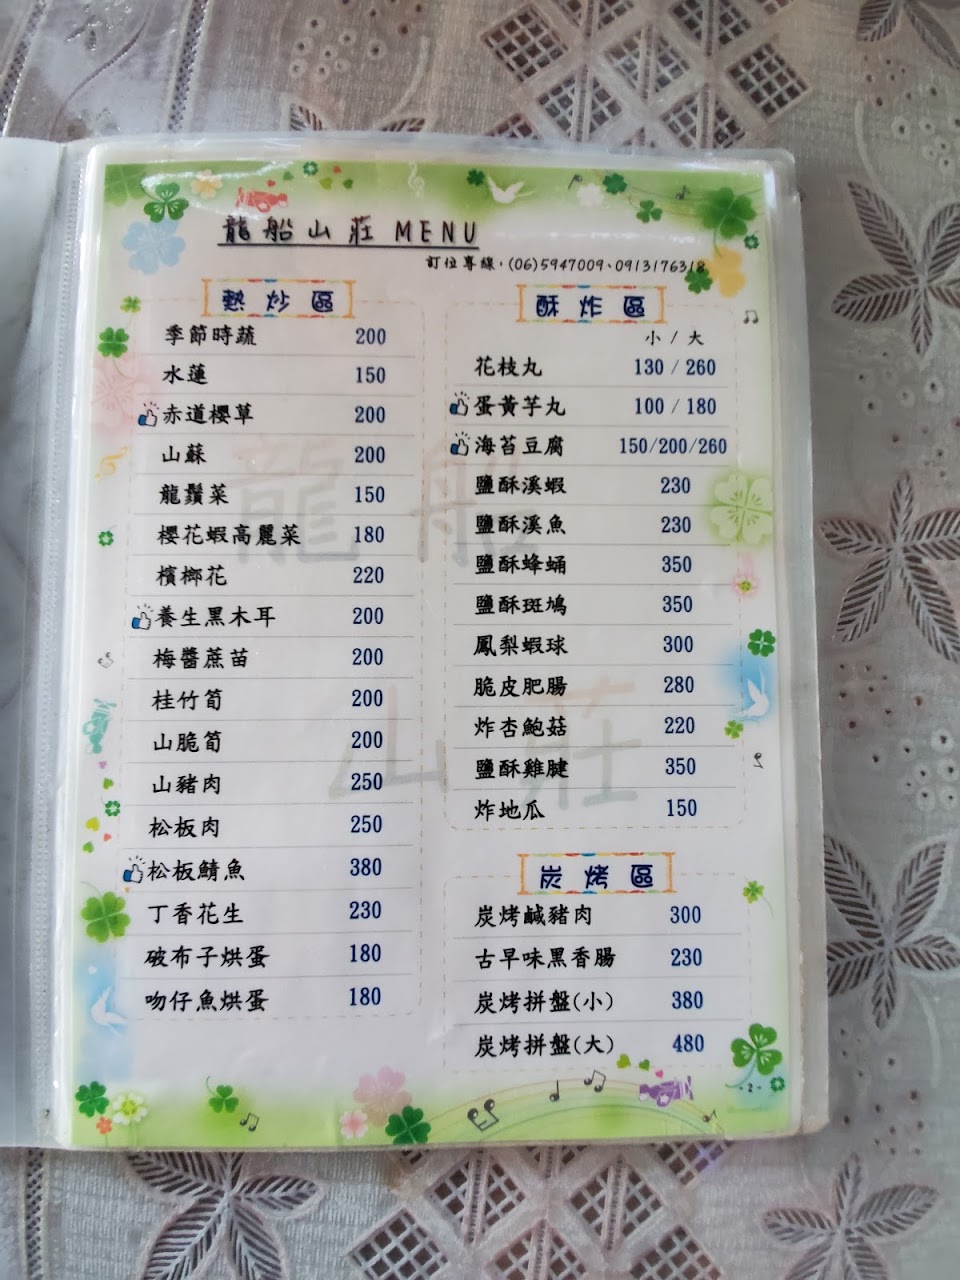 龍船山莊 MENU
訂位專線，(06)5947009、0913176318
熱炒區
季節時蔬 200
水蓮 150
赤道櫻草 200
山蘇 200
龍鬚菜 150
櫻花蝦高麗菜 180
檳榔花 220
養生黑木耳 200
梅醬蔗苗 200
桂竹筍 200
山脆筍 200
山豬肉 250
松板肉 250
松板鯖魚 380
丁香花生 230
破布子烘蛋 180
吻仔魚烘蛋 180
酥炸區
小 / 大
花枝丸 130 / 260
蛋黃芋丸 100 / 180
海苔豆腐 150/200/260
鹽酥溪蝦 230
鹽酥溪魚 230
鹽酥蜂蛹 350
鹽酥斑鳩 350
鳳梨蝦球 300
脆皮肥腸 280
炸杏鮑菇 220
鹽酥雞腱 350
炸地瓜 150
炭烤區
炭烤鹹豬肉 300
古早味黑香腸 230
炭烤拼盤(小) 380
炭烤拼盤(大) 480
龍船
山莊
- 2 -